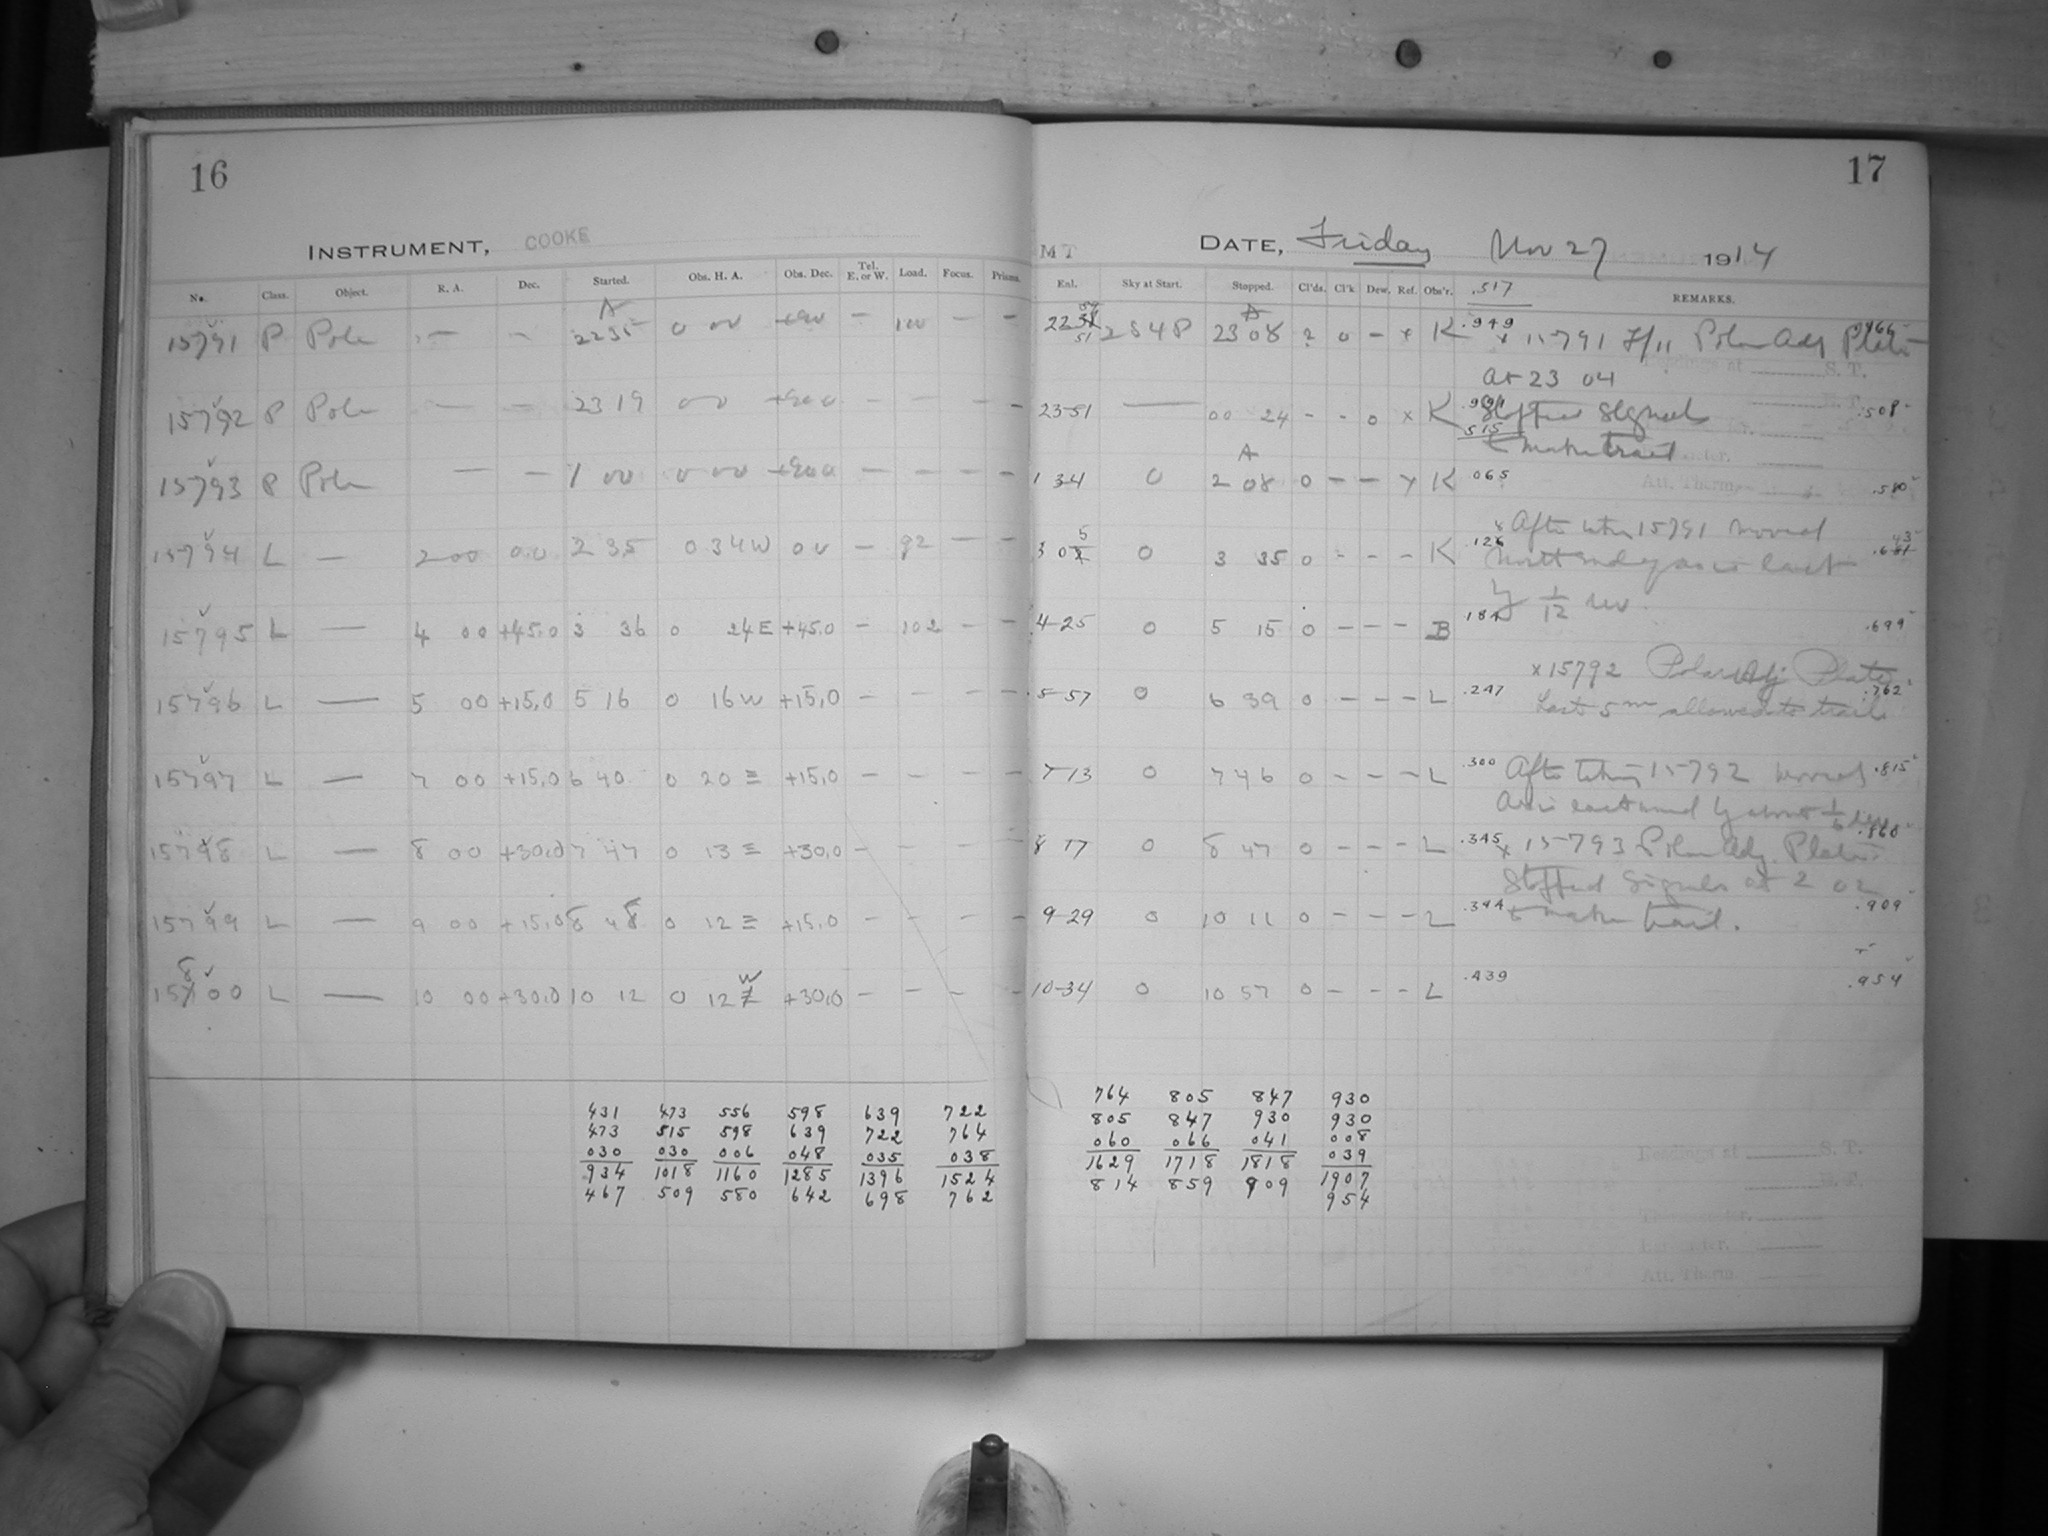 16
INSTRUMENT, COOKE
No. Class. Object. R. A. Dec. Started. Obs. H. A. Obs. Dec. Tel. E. or W. Load. Focus. Prisms.
A
15791 P Pole — — 2235 0 00 +90 — 100 — —
15792 P Pole — — 23 19 00 +90 0 — — — —
15793 P Pole — — 1 00 0 00 +90 0 — — — —
15794 L — 2 00 00 2 35 0 34 W 00 — 92 — —
15795 L — 4 00 +45,0 3 36 0 24 E +45,0 — 102 — —
15796 L — 5 00 +15,0 5 16 0 16 W +15,0 — — — —
15797 L — 7 00 +15,0 6 40 0 20 E +15,0 — — — —
15798 L — 8 00 +30,0 7 47 0 13 E +30,0 — — — —
15799 L — 9 00 +15,0 8 48 0 12 E +15,0 — — — —
15800 L — 10 00 +30,0 10 12 0 12 W +30,0 — — — —
431 473 556 598 639 722
473 515 598 639 722 764
030 030 006 048 035 038
934 1018 1160 1285 1396 1524
467 509 580 642 698 762
17
M T DATE, Friday Nov 27 1914
Enl. Sky at Start. Stopped. Cl'ds. Cl'k Dew. Ref. Obs'r. .517 REMARKS.
A
2251 2548P 23 08 ? 0 — x K .949 x 15791 F/11 Polar Adj Plate
At 23 04
23-51 — 00 24 - - 0 x K Stopped Signals .508
.515 & make trail
A
1 34 0 2 08 0 — — x K .065 .580
3 05 0 3 35 0 - - - K .126 After taking 15791 moved
North end of axis east
by 1/12 rev.
4-25 0 5 15 0 - - - B .184 .699
x 15792 Polar Adj Plate
5-57 0 6 39 0 - - - L .247 Last 5m allowed to trail .762
7-13 0 7 46 0 - - - L .300 After taking 15792 moved .815
Axis eastward by about
8 17 0 8 47 0 - - - L .345 x 15793 Polar Adj. Plate .860
Stopped Signals at 2 02
9-29 0 10 11 0 - - - L .394 & make trail. .909
10-34 0 10 57 0 - - - L .439 .954
764 805 847 930
805 847 930 930
060 066 041 008
1629 1718 1818 039
814 859 909 1907
954